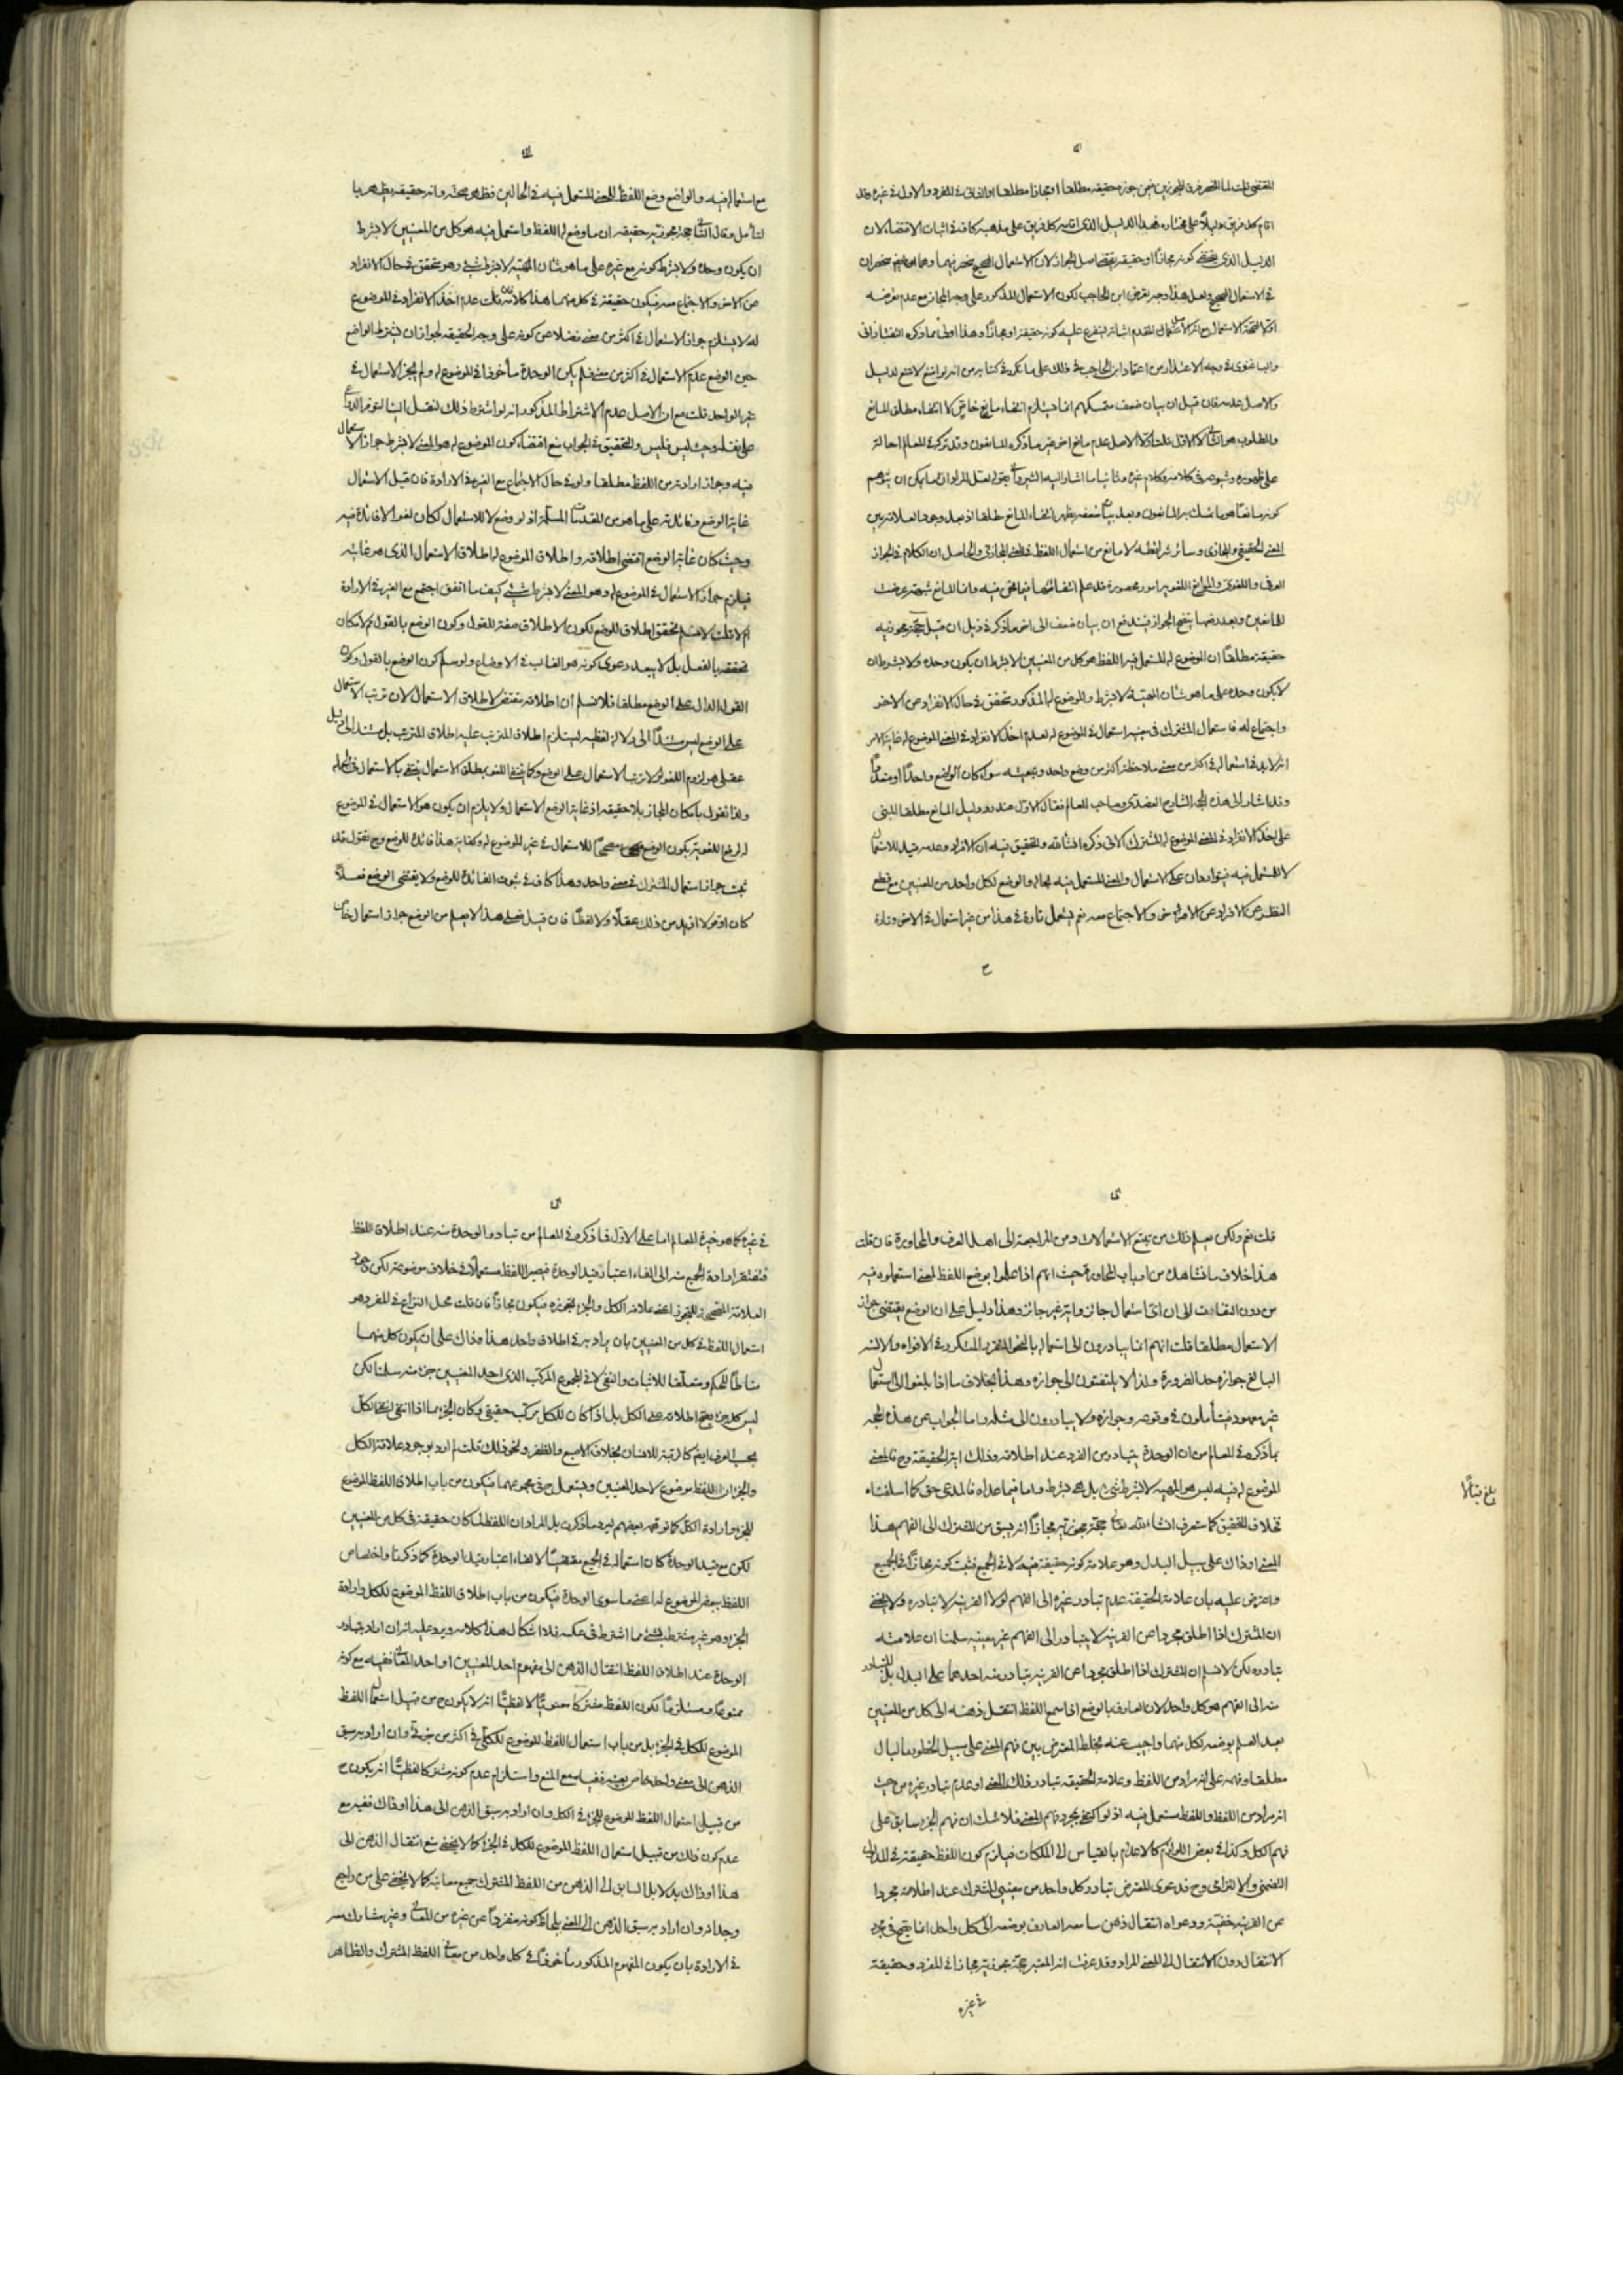 اقام كل فريق دليلاً على مختاره فهذا الدليل الذى اقامه كل فريق على مذهبه كاف فى اثبات الاقتضاء لان
الدليل الذى يقتضى كونه مجازا او حقيقة يقتضى اصل الجواز لان الاستعمال الصحيح منحصر فيهما
فى الاستعمال الصحيح ولعل هذا وجه تعرض ابن الحاجب لكون الاستعمال المذكور على وجه المجاز مع عدم تعرضه
والاصل عدمه فان قيل ان بيان ضعف متمسكهم انما يستلزم انتفاء مانع خاص لا انتفاء مطلق المانع
والمطلوب هو الثانى لا الاول قلت اولا الاصل عدم مانع اخر غير ما ذكره المانعون وقد تركه فى المعالم احالة
على ظهوره وشيوعه فى كلامه وكلام غيره وثانيا ما اشار اليه الشيروانى بقوله لعل المراد ان ما يمكن ان يتوهم
كونه مانعا هو ما تمسك به المانعون وبعد بيان ضعفه يظهر انتفاء المانع مطلقا اذ بعد وجود العلاقة بين
المعنى الحقيقى والمجازى وسائر شرائطه لا مانع من استعمال اللفظ فى المعنى المجازى والحاصل ان الكلام فى الجواز
العرفى واللغوى والموانع اللغوية امور محصورة قد علم انتفائها فيما نحن فيه
حقيقة مطلقا ان الموضوع له المستعمل فيه اللفظ هو كل من المعنيين لا بشرط ان يكون وحده ولا بشرط ان
لا يكون وحده على ما هو شان المهية لا بشرط والموضوع له المذكور متحقق فى حال الانفراد عن الاخر
واجتماعه معه فاستعمال المشترك فى معنييه استعمال فى الموضوع له لعدم اخذ الانفراد فى المعنى الموضوع له
وقد اشار الى هذه الحجة الشارح العضدى وصاحب المعالم فقال الاول عند رد دليل المانع مطلقا المبنى
على اخذ الانفراد فى المعنى الموضوع له المشترك الاتى ذكره انشاء الله والتحقيق فيه ان الانفراد وعدمه قيد للاستعمال
لا للمستعمل فيه فيتواردان على الاستعمال والمعنى المستعمل فيه بحاله والواضع لكل واحد من المعنيين مع قطع
النظر عن الانفراد عن الاخر والاجتماع معه ثم يستعمل تارة فى هذا من غير استعمال فى الاخر وتارة
مع استعماله فيه والواضع وضع اللفظ للمعنى المستعمل فيه فى الحالين فظهر صحته وانه حقيقة يظهر بها
لتأمل وقال الثانى حجة مجوزيه حقيقة ان ما وضع له اللفظ واستعمل فيه هو كل من المعنيين لا بشرط
ان يكون وحده ولا بشرط كونه مع غيره على ما هو شان المهية لا بشرط شئ وهو متحقق فى حال الانفراد
عن الاخر والاجتماع معه فيكون حقيقة فى كل منهما هذا كلامه قلت عدم اخذ الانفراد فى الموضوع
له لا يستلزم جواز الاستعمال فى اكثر من معنى فضلا عن كونه على وجه الحقيقة لجواز ان يشترط الواضع
حين الوضع عدم الاستعمال فى اكثر من معنى فلم يكن الوحدة مأخوذا فى الموضوع له ولم يجز الاستعمال فى
غير الواحد قلت مع ان الاصل عدم الاشتراط المذكور انه لو اشترط ذلك لنقل الينا لتوفر الدواعى
على نقله وحيث ليس فليس والتحقيق فى الجواب منع اقتضاء كون الموضوع له هو المعنى لا بشرط جواز الاستعمال
فيه وجواز ارادته من اللفظ مطلقا ولو فى حال الاجتماع مع الغير فى الارادة فان قيل الاستعمال
غاية الوضع وفائدته على ما هو من المقدمات المسلمة اذ لو وضع لا للاستعمال لكان لغوا لا فائدة فيه
وحيث كان غاية الوضع اقتضى اطلاقه واطلاق الموضوع له اطلاق الاستعمال الذى هو غايته
فيلزم جواز الاستعمال فى الموضوع له وهو المعنى لا بشرط شئ كيف ما اتفق اجتمع مع الغير فى الارادة
ام لا قلت لا نسلم تحقق اطلاق للوضع لكون الاطلاق صفة للقول وكون الوضع بالقول ثم لامكان
تحققه بالفعل بل لا يبعد دعوى كونه هو الغالب فى الاوضاع ولو سلم كون الوضع بالقول وكون
القول الدال على الوضع مطلقا فلا نسلم ان اطلاقه مقتض لاطلاق الاستعمال لان ترتب الاستعمال
على الوضع ليس مستندًا الى دلالة لفظية ليستلزم اطلاق المترتب عليه اطلاق المترتب بل مستند الى دليل
ثبت جواز استعمال المشترك فى معنى واحد وهذا كاف فى ثبوت الفائدة للوضع ولا يقتضى الوضع فعلا
كان او قولا ازيد من ذلك عقلًا ولا لفظًا فان قيل فعلى هذا لا يعلم من الوضع جواز استعمال خاص
قلت نعم ولكن يعلم ذلك من تتبع الاستعمالات ومن المراجعة الى اهل العرف والمحاورة فان قلت
هذا خلاف ما نشاهد من ارباب المحاورة حيث انهم اذا علموا بوضع اللفظ لمعنى استعملوه فيه
من دون التفات الى ان اى استعمال جائز وايه غير جائز وهذا دليل على ان الوضع يقتضى جواز
الاستعمال مطلقا قلت انهم انما يبادرون الى استعماله بالنحو المتعارف المتكرر فى الافواه والالسنة
البالغ جوازه حد الضرورة ولذا لا يلتفتون الى جوازه وهذا بخلاف ما اذا بلغوا الى استعمال
غير معهود فيتأملون فى وقوعه وجوازه ولا يبادرون الى مثله واما الجواب عن هذه الحجة
بما ذكره فى المعالم من ان الوحدة يتبادر من المفرد عند اطلاقه وذلك اية الحقيقة وح فالمعنى
الموضوع له فيه ليس هو المهية لا بشرط شئ بل هى بشرط واما فيما عداه فالمدعى حق كما اسلفناه
بلغ قبالًا
فخلاف التحقيق كما ستعرف انشاء الله تعالى حجة مجوزيه مجازًا انه يسبق من المشترك الى الفهم هذا
المعنى او ذاك على سبيل البدل وهو علامة كونه حقيقة فيه لا فى الجميع فثبت كونه مجازًا فى الجميع
واعترض عليه بان علامة الحقيقة عدم تبادر غيره الى الفهم لولا القرينة لا تبادره ولا يخفى
ان المشترك اذا اطلق مجردا عن القرينة لا يتبادر الى الفهم غير معنييه سلمنا ان علامته
تبادره لكن لا نسلم ان المشترك اذا اطلق مجردا عن القرينة تبادر منه احدهما على البدل بل المتبادر
منه الى الفهم هو كل واحد لان العارف بالوضع اذا سمع اللفظ انتقل ذهنه الى كل من المعنيين
بعد العلم بوضعه لكل منهما واجيب عنه بخلط المعترض بين فهم المعنى على سبيل الخطور بالبال
مطلقا وفهمه على انه مراد من اللفظ وعلامة الحقيقة تبادر ذلك المعنى او عدم تبادر غيره من حيث
انه مراد من اللفظ واللفظ مستعمل فيه اذ لو اكتفى بمجرد فهم المعنى فلا شك ان فهم الجزء سابق على
فهم الكل وكذا فى بعض اللوازم كالاعدام بالقياس الى الملكات فيلزم كون اللفظ حقيقة فى المدلول
التضمنى والالتزامى وح فدعوى المعترض تبادر كل واحد من معنيى المشترك عند اطلاقه مجردا
عن القرينة خفية ودعواه انتقال ذهن سامعه العارف بوضعه الى كل واحد انما يتجه فى مجرد
الانتقال دون الانتقال الى المعنى المراد وقد عرفت انه المعتبر حجة مجوزيه مجازا فى المفرد وحقيقة
فى غيره
فى غيره كما هو خيرة المعالم اما على الاول فما ذكره فى المعالم من تبادر الوحدة منه عند اطلاق اللفظ
فيفتقر ارادة الجميع منه الى الغاء اعتبار قيد الوحدة فيصير اللفظ مستعملًا فى خلاف موضوعه لكن وجود
العلاقة المصححة للتجوز اعنى علاقة الكل والجزء يجوزه فيكون مجازًا فان قلت محل النزاع فى المفرد هو
استعمال اللفظ فى كل من المعنيين بان يراد به فى اطلاق واحد هذا وذاك على ان يكون كل منهما
مناطًا للحكم ومتعلقا للاثبات والنفى لا فى المجموع المركب الذى احد المعنيين جزء منه سلمنا لكن
ليس كل جزء يصح اطلاقه على الكل بل اذا كان للكل تركب حقيقى وكان الجزء مما اذا انتفى انتفى الكل
بحسب العرف ايضا كالرقبة للانسان بخلاف الاصبع والظفر ونحو ذلك قلت لم ارد بوجود علاقة الكل
والجزء ان اللفظ موضوع لاحد المعنيين ويستعمل ح فى مجموعهما فيكون من باب اطلاق اللفظ الموضوع
للجزء وارادة الكل كما توهمه بعضهم ليرد ما ذكرت بل المراد ان اللفظ لما كان حقيقة فى كل من المعنيين
لكن مع قيد الوحدة كان استعماله فى الجميع مقتضيًا لالغاء اعتبار قيد الوحدة كما ذكرنا واختصاص
اللفظ ببعض الموضوع له اعنى ما سوى الوحدة فيكون من باب اطلاق اللفظ الموضوع للكل وارادة
الجزء وهو غير مشترط بشئ مما اشترط فى عكسه فلا اشكال هذا كلامه ويرد عليه انه ان اراد بتبادر
الوحدة عند اطلاق اللفظ انتقال الذهن الى مفهوم احد المعنيين او احد المعانى ففيه مع كونه
ممنوعًا ومستلزمًا لكون اللفظ مشتركا معنويًا لا لفظيًا انه لا يكون ح من قبيل استعمال اللفظ
الموضوع للكل فى الجزء بل من باب استعمال اللفظ الموضوع للكلى فى اكثر من جزئى وان اراد به سبق
الذهن الى معنى واحد خاص بعينه ففيه مع المنع واستلزام عدم كونه مشتركا لفظيًا انه يكون ح
من قبيل استعمال اللفظ الموضوع للجزء فى الكل وان اراد به سبق الذهن الى هذا او ذاك ففيه مع
عدم كون ذلك من قبيل استعمال اللفظ الموضوع للكل فى الجزء كما لا يخفى منع انتقال الذهن الى
هذا او ذاك بدلا بل السابق الى الذهن من اللفظ المشترك جميع معانيه كما لا يخفى على من راجع
وجدانه وان اراد به سبق الذهن الى المعنى بلحاظ كونه منفردًا عن غيره من المعانى وغير مشارك معه
فى الارادة بان يكون المفهوم المذكور مأخوذًا فى كل واحد من معانى اللفظ المشترك والظاهر